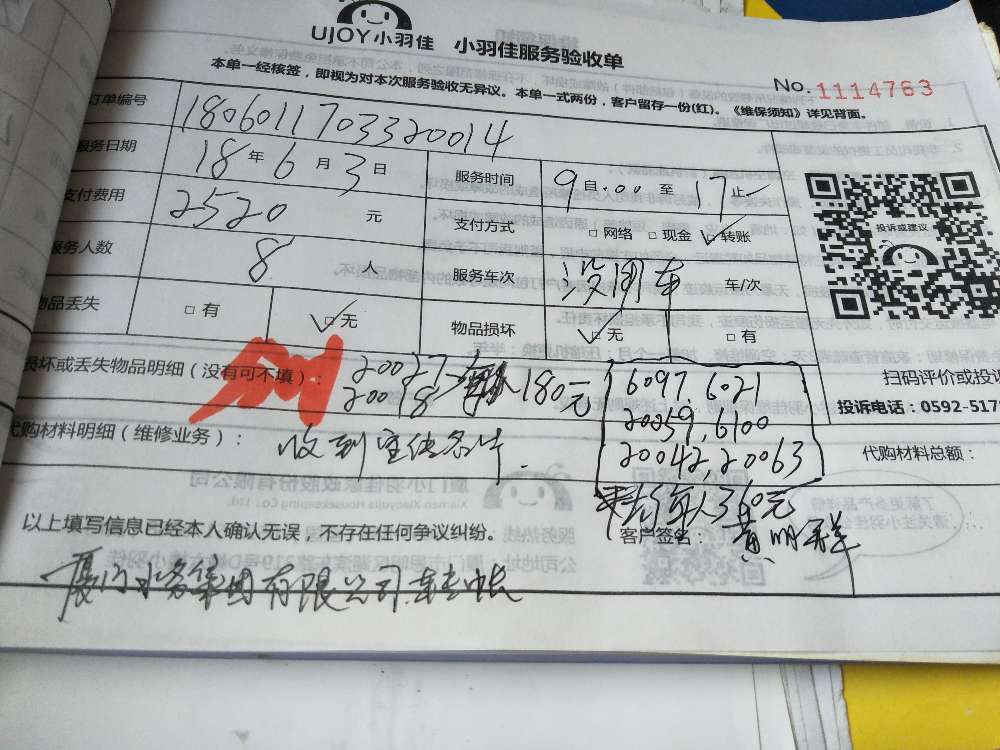 UJOY小羽佳 小羽佳服务验收单
本单一经核签，即视为对本次服务验收无异议。本单一式两份，客户留存一份(红)。《维保须知》详见背面。
No.1114763
订单编号 1806011703320014
服务日期 18年6月3日 服务时间 9自.00至17止
支付费用 2520元 支付方式 □网络 □现金 ☑转账
服务人数 8人 服务车次 没用车 车/次
物品丢失 □有 ☑无 物品损坏 ☑无 □有
投诉或建议
扫码评价或投诉
投诉电话：0592-517
损坏或丢失物品明细（没有可不填）：
20027
20018 180元
6097.6021
20059,6100
20042,20063
每人360元
代购材料明细（维修业务）：收到宣传条件.
代购材料总额：
以上填写信息已经本人确认无误，不存在任何争议纠纷。
客户签名：黄明群
厦门水务集团有限公司